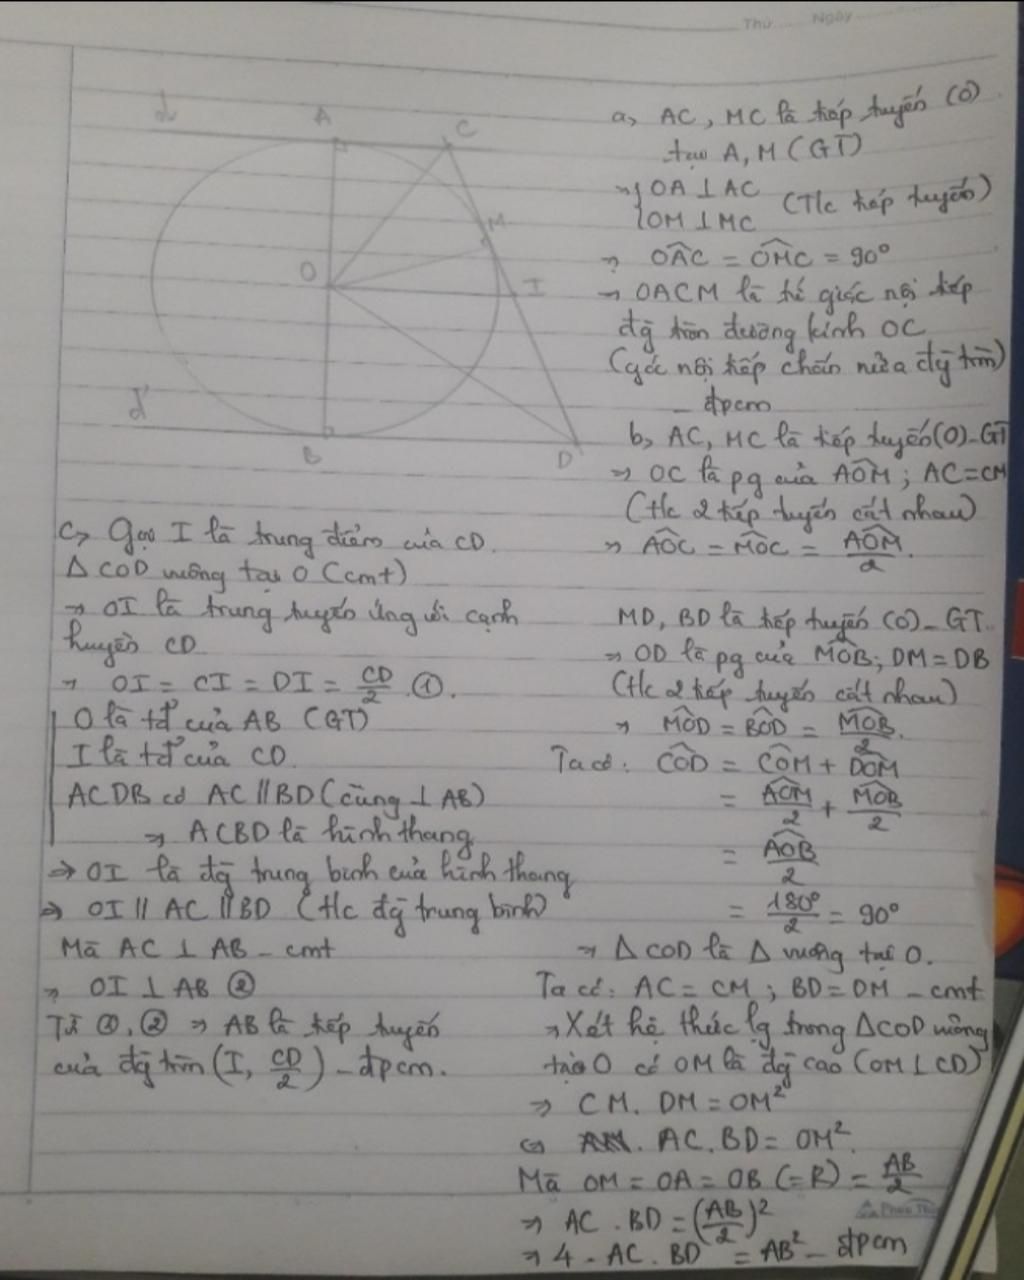 Thứ Ngày
d
A
C
M
O
I
d'
B
D
a, AC, MC là tiếp tuyến (O)
tại A, M (GT)
⇒ { OA ⊥ AC
OM ⊥ MC (T/c tiếp tuyến)
⇒ OÂC = OM̂C = 90°
⇒ OACM là tứ giác nội tiếp
đg tròn đường kính OC
(góc nội tiếp chắn nửa đg tròn)
_ đpcm
b, AC, MC là tiếp tuyến (O) - GT
⇒ OC là pg của AÔM ; AC = CM
(t/c 2 tiếp tuyến cắt nhau)
⇒ AÔC = MÔC = AÔM/2.
MD, BD là tiếp tuyến (O) - GT.
⇒ OD là pg của MÔB ; DM = DB
(t/c 2 tiếp tuyến cắt nhau)
⇒ MÔD = BÔD = MÔB/2.
Ta có: CÔD = CÔM + DÔM
= AÔM/2 + MÔB/2
= AÔB/2
= 180°/2 = 90°
⇒ Δ COD là Δ vuông tại O.
Ta có: AC = CM ; BD = DM - cmt
⇒ Xét hệ thức lg trong ΔCOD vuông
tại O có OM là đg cao (OM ⊥ CD)
⇒ CM. DM = OM²
⇔ AC. BD = OM².
Mà OM = OA = OB (=R) = AB/2
⇒ AC . BD = (AB/2)²
⇒ 4 . AC. BD = AB² - đpcm
c, Gọi I là trung điểm của CD.
Δ COD vuông tại O (cmt)
⇒ OI là trung tuyến ứng với cạnh
huyền CD
⇒ OI = CI = DI = CD/2 ①.
O là tđ của AB (GT)
I là tđ của CD.
ACDB có AC // BD (cùng ⊥ AB)
⇒ ACBD là hình thang
⇒ OI là đg trung bình của hình thang
⇒ OI // AC // BD (t/c đg trung bình)
Mà AC ⊥ AB - cmt
⇒ OI ⊥ AB ②
Từ ①, ② ⇒ AB là tiếp tuyến
của đg tròn (I, CD/2) - đpcm.